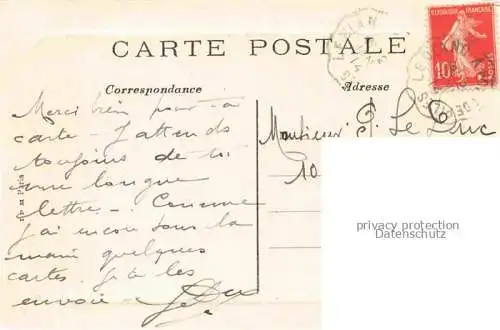 CARTE POSTALE
Correspondance
Adresse
Merci bien pour ta
carte - J'attends
toujours de toi
une longue
lettre - Comme
j'ai encore sous la
main quelques
cartes je te les
envoie
Monsieur P. Le Duc
10
privacy protection
Datenschutz